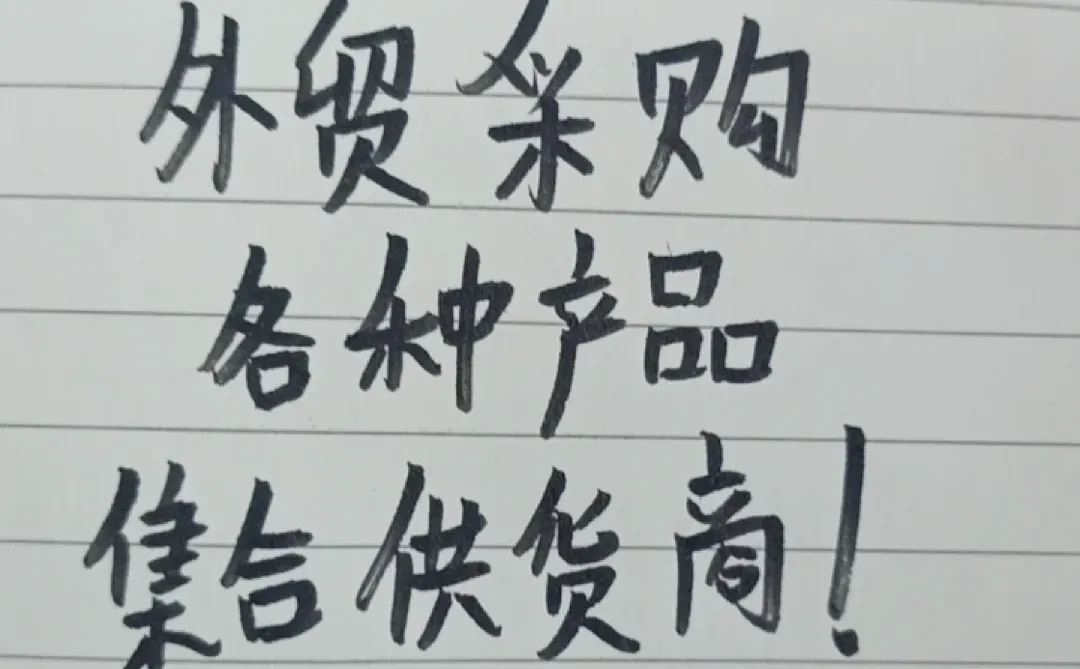 外贸采购
各种产品
集合供货商!